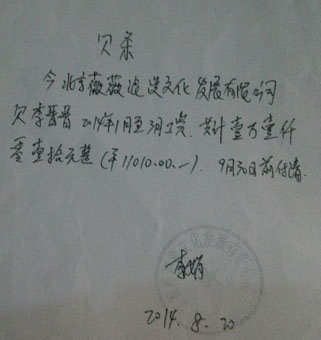 欠条
今北京薇薇浪漫文化发展有限公司
欠李晋晋2014年1月至3月工资.共计壹万壹仟
零壹拾元整(¥11010.00.-).9月30日前付清.
李娟
2014.8.20